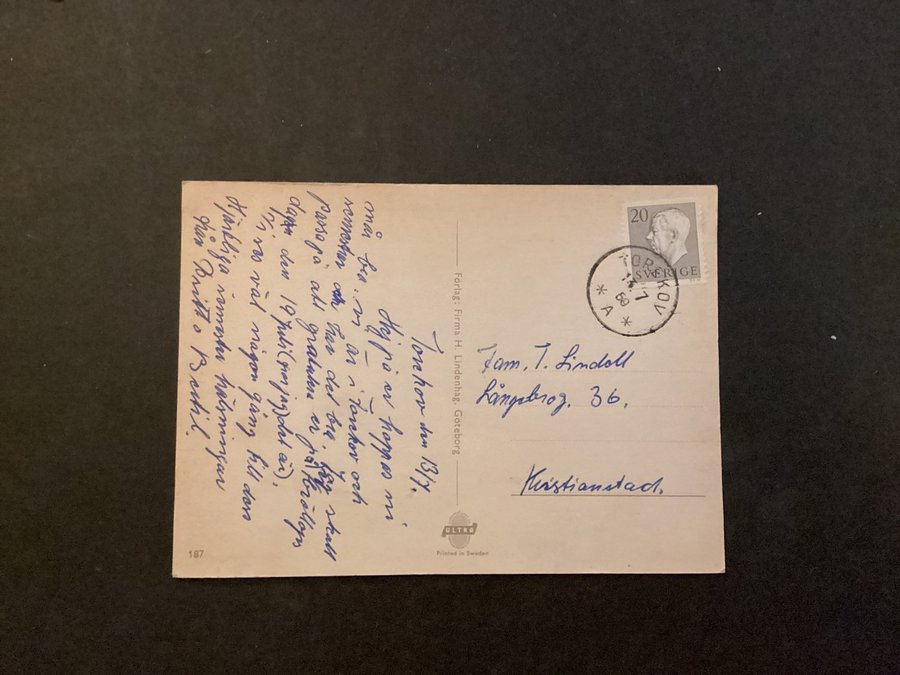 Torekov den 13/7.
Hej på er hoppas ni
må bra. vi är i Torekov och
semestrar och har det bra. Jag skall
passa på att gratulera er på bröllops
dagen den 19 juli (om jag
Vi ses väl någon gång till dess
Hjärtliga semester hälsningar
från Britt o Bertil.
187
Förlag: Firma H. Lindenhag, Göteborg
ULTRA
Printed in Sweden
20
SVERIGE
TOREKOV
7
59
* A *
Fam. T. Lindoll
Långebrog. 36.
Kristianstad.